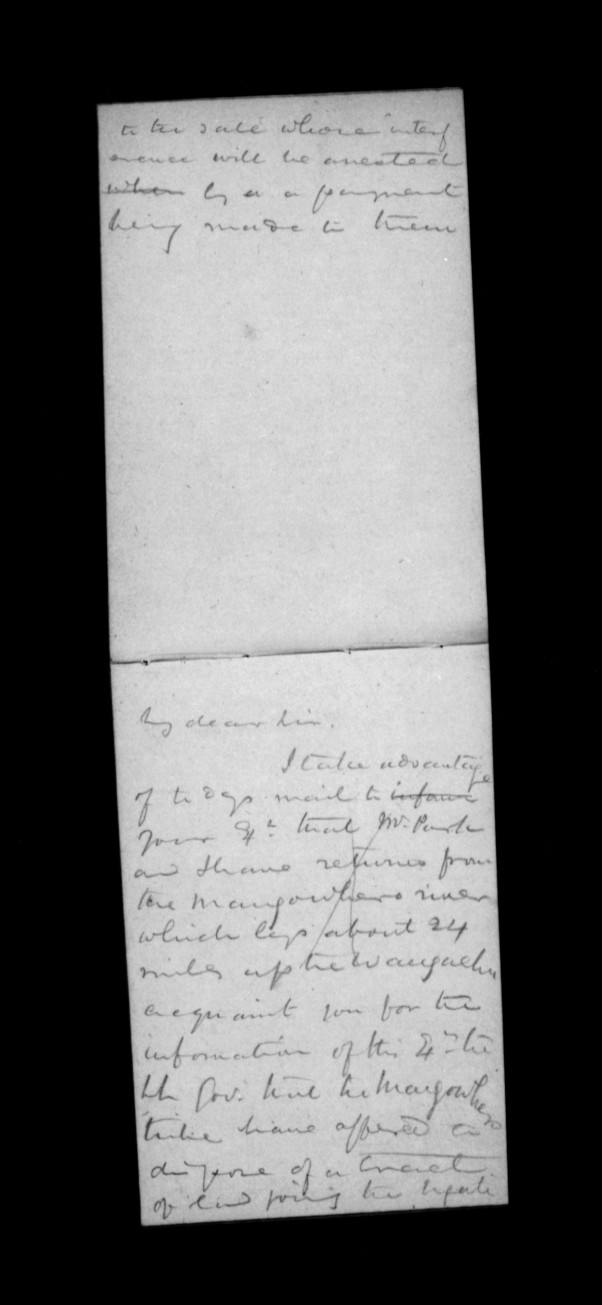 to the sale whose interf
erence will be arrested
when by a a payment
being made to them
My dear Sir.
I take advantage
of to days mail to inform
your that Mr. Park
and I have returned from
the Mangowhero river
which lays about 24
miles up the Wangaehu
acquaint you for the
information of His the
Lt. Gov. that the Mangowhero
tribe have offered a
dispose of a tract
of land joining the Ngati